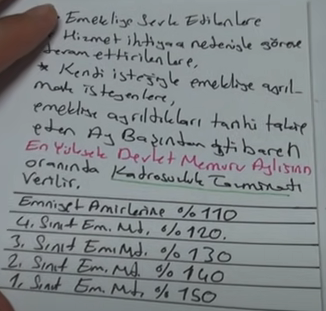 - Emekliye Sevk Edilenlere
- Hizmet ihtiyacı nedeniyle göreve
devam ettirilenlere,
* Kendi isteğiyle emekliye ayrıl-
mak isteyenlere,
emekliye ayrıldıkları tarihi takip
eden Ay Başından itibaren
En Yüksek Devlet Memuru Aylığının
oranında Kadrosuzluk Tazminatı
Verilir.
Emniyet Amirlerine % 110
4. Sınıf Em. Md. % 120.
3. Sınıf Em. Md. % 130
2. Sınıf Em. Md. % 140
1. Sınıf Em. Md. % 150